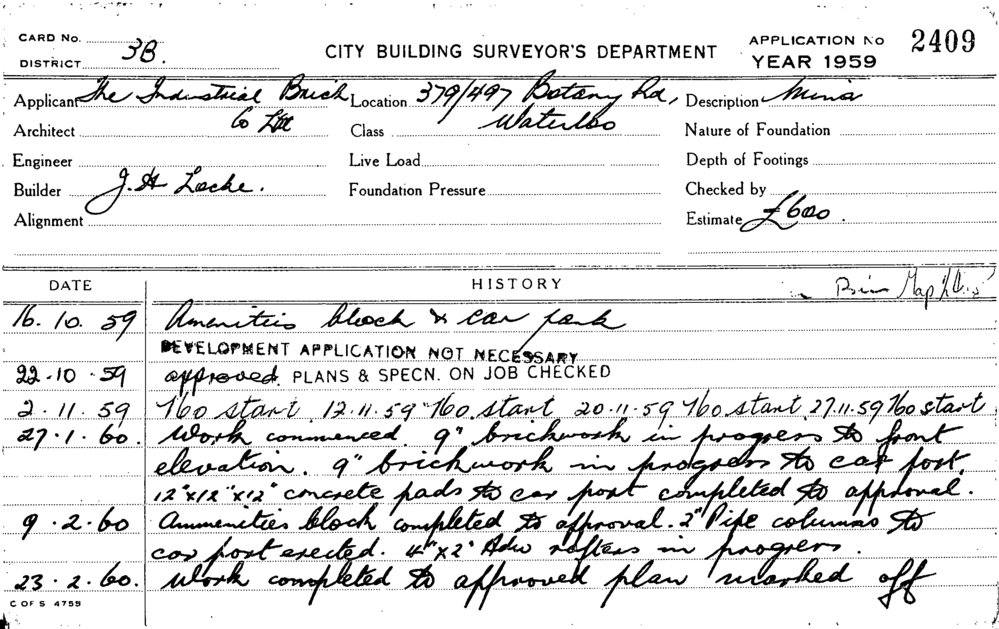 CARD No.
DISTRICT 3B.
CITY BUILDING SURVEYOR'S DEPARTMENT
APPLICATION No 2409
YEAR 1959
Applicant The Industrial Brick Co Ltd
Location 379/497 Botany Rd, Waterloo
Description
Architect
Class
Nature of Foundation
Engineer
Live Load
Depth of Footings
Builder J. H Locke.
Foundation Pressure
Checked by
Alignment
Estimate £600.
DATE HISTORY
16. 10. 59 Amenities block & car park
DEVELOPMENT APPLICATION NOT NECESSARY
22.10.59 approved. PLANS & SPECN. ON JOB CHECKED
2.11.59 No start 12.11.59 No start 20.11.59 No start 27.11.59 No start
27.1.60. Work commenced. 9" brickwork in progress to front
elevation. 9" brickwork in progress to car port.
12"x12"x12" concrete pads to car port completed to approval.
9.2.60 Ammenities block completed to approval. 2" Pipe columns to
car port erected. 4"x2" rafters in progress.
23.2.60. Work completed to approved plan marked off
C OF S 4759